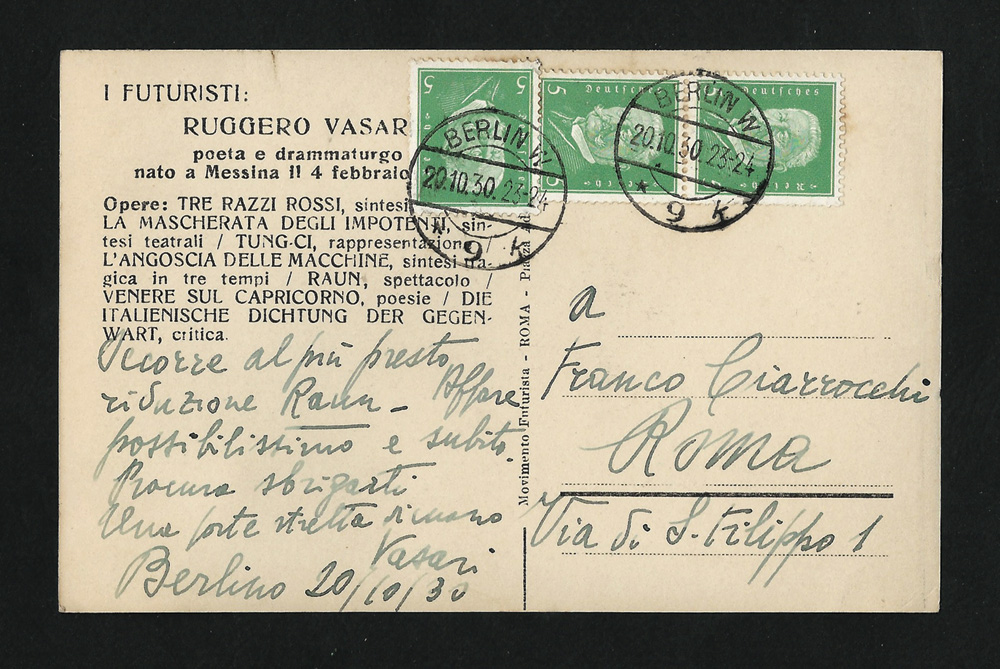 I FUTURISTI:
RUGGERO VASAR
poeta e drammaturgo
nato a Messina il 4 febbraio
Opere: TRE RAZZI ROSSI, sintesi
LA MASCHERATA DEGLI IMPOTENTI, sin-
tesi teatrali / TUNG-CI, rappresentazione /
L'ANGOSCIA DELLE MACCHINE, sintesi tra-
gica in tre tempi / RAUN, spettacolo /
VENERE SUL CAPRICORNO, poesie / DIE
ITALIENISCHE DICHTUNG DER GEGEN-
WART, critica.
Occorre al più presto
riduzione Raun - Affare
possibilissimo e subito.
Procura sbrigarti
Una forte stretta di mano
Vasari
Berlino 20/10/30
Movimento Futurista - ROMA - Piazza Ad
5 5
Deutsches
5 5
Reich
Deutsches
Reich
BERLIN W
20.10.30. 23-24
* 9 k
BERLIN W
20.10.30. 23-24
* 9 k *
a
Franco Ciarrocchi
Roma
Via di S. Filippo 1